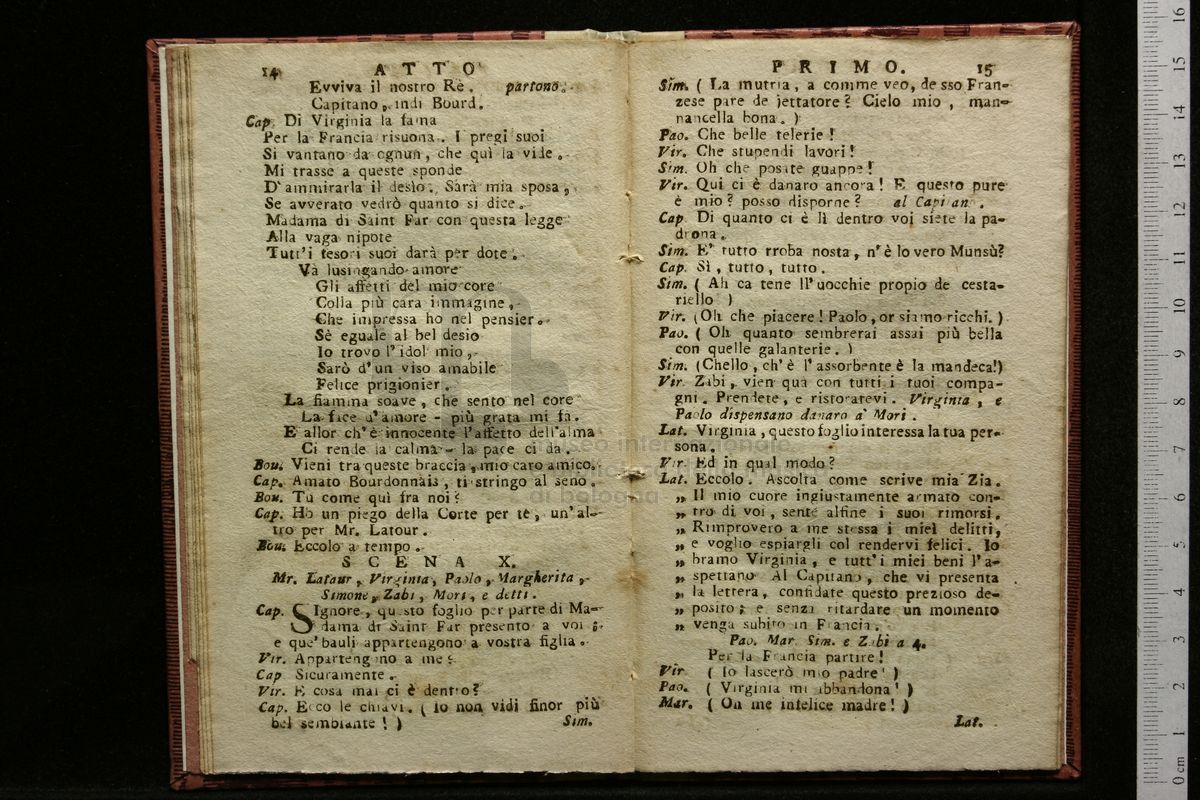 14 ATTO
Evviva il nostro Rè. partono.
Capitano, indi Bourd.
Cap. Di Virginia la fama
Per la Francia risuona. I pregi suoi
Si vantano da ognun, che quì la vide.
Mi trasse a queste sponde
D'ammirarla il desìo. Sarà mia sposa,
Se avverato vedrò quanto si dice.
Madama di Saint Far con questa legge
Alla vaga nipote
Tutt'i tesori suoi darà per dote.
Và lusingando amore
Gli affetti del mio core
Colla più cara immagine,
Che impressa ho nel pensier.
Sè eguale al bel desio
Io trovo l'idol mio,
Sarò d'un viso amabile
Felice prigionier.
La fiamma soave, che sento nel core
La face d'amore - più grata mi fa.
E allor ch'è innocente l'affetto dell'alma
Ci rende la calma - la pace ci da.
Bou. Vieni tra queste braccia, mio caro amico.
Cap. Amato Bourdonnais, ti stringo al seno.
Bou. Tu come quì fra noi?
Cap. Ho un piego della Corte per tè, un'al-
tro per Mr. Latour.
Bou. Eccolo a tempo.
SCENA X.
Mr. Latour, Virginia, Paolo, Margherita,
Simone, Zabi, Mori, e detti.
Cap. SIgnore, questo foglio per parte di Ma-
dama di Saint Far presento a voi;
e que' bauli appartengono a vostra figlia.
Vir. Appartengono a me?
Cap Sicuramente.
Vir. E cosa mai ci è dentro?
Cap. Ecco le chiavi. (Io non vidi finor più
bel sembiante!)
Sim.
PRIMO. 15
Sim. (La mutria, a comme veo, de sso Fran-
zese pare de jettatore? Cielo mio, man-
nancella bona.)
Pao. Che belle telerie!
Vir. Che stupendi lavori!
Sim. Oh che posate guappe!
Vir. Qui ci è danaro ancora! E questo pure
è mio? posso disporne? al Capitan.
Cap Di quanto ci è lì dentro voi siete la pa-
drona.
Sim. E' tutto rroba nosta, n'è lo vero Munsù?
Cap. Sì, tutto, tutto.
Sim. (Ah ca tene ll'uocchie propio de cesta-
riello)
Vir. (Oh che piacere! Paolo, or siamo ricchi.)
Pao. (Oh quanto sembrerai assai più bella
con quelle galanterie.)
Sim. (Chello, ch'è l'assorbente è la mandeca!)
Vir. Zabi, vien quà con tutti i tuoi compa-
gni. Prendete, e ristoratevi. Virginia, e
Paolo dispensano danaro a' Mori.
Lat. Virginia, questo foglio interessa la tua per-
sona.
Vir. Ed in qual modo?
Lat. Eccolo. Ascolta come scrive mia Zia.
„ Il mio cuore ingiustamente armato con-
„ tro di voi, sente alfine i suoi rimorsi.
„ Rimprovero a me stessa i miei delitti,
„ e voglio espiargli col rendervi felici. Io
„ bramo Virginia, e tutt'i miei beni l'a-
„ spettano Al Capitano, che vi presenta
„ la lettera, confidate questo prezioso de-
„ posito; e senza ritardare un momento
„ venga subito in Francia.
Pao. Mar. Sim. e Zabi a 4.
Per la Francia partire!
Vir (Io lascerò mio padre!)
Pao. (Virginia mi abbandona!)
Mar. (Oh me infelice madre!)
Lat.
museo internazionale
di bologna
0 cm 1 2 3 4 5 6 7 8 9 10 11 12 13 14 15 16